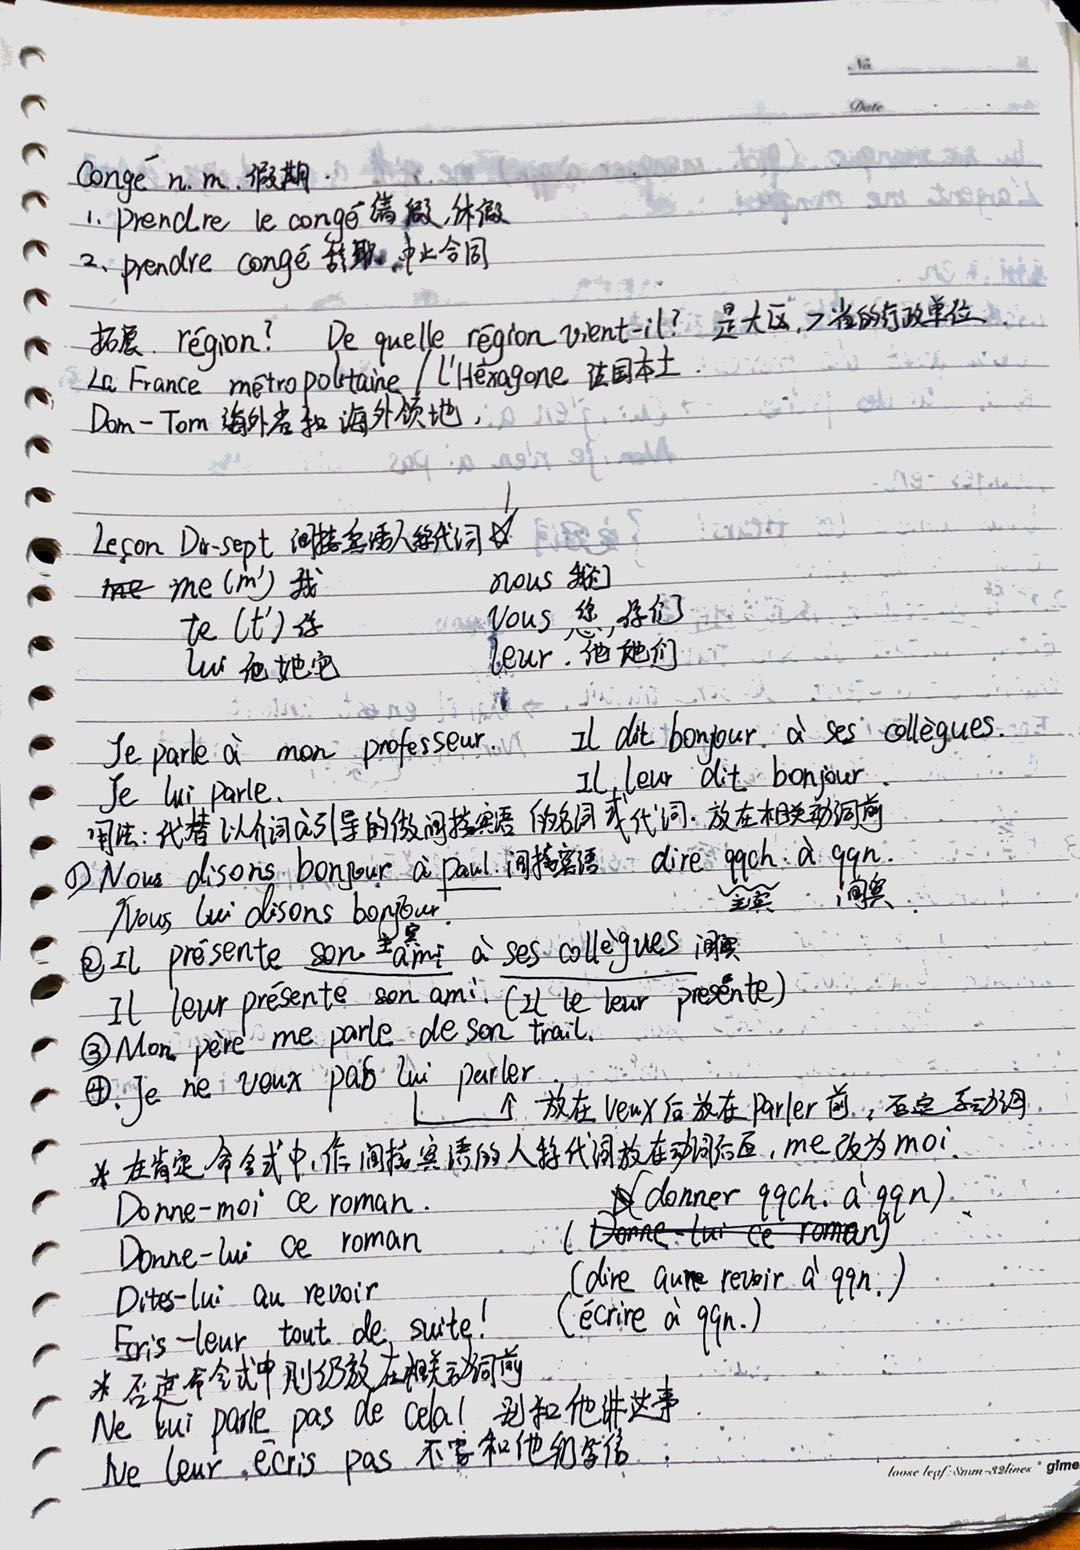 No
Date
Congé n.m. 假期.
1. prendre le congé 请假,休假
2. prendre congé 辞职,中止合同
拓展. région? De quelle région vient-il? 是大区,>省的行政单位.
La France métropolitaine / l'Hexagone 法国本土.
Dom-Tom 海外省和海外领地.
Leçon Dix-sept 间接宾语人称代词 ☆
me me (m') 我 nous 我们
te (t') 你 vous 您,你们
lui 他她它 leur. 他她们
Je parle à mon professeur. Il dit bonjour à ses collègues.
Je lui parle. Il leur dit bonjour.
用法: 代替以介词à引导的做间接宾语的名词或代词. 放在相关动词前
① Nous disons bonjour à paul. 间接宾语 dire qqch. à qqn.
Nous lui disons bonjour. 直宾 间宾
② Il présente son ami 直宾 à ses collègues 间宾
Il leur présente son ami. (Il le leur présente)
③ Mon père me parle de son trail.
④. Je ne veux pas lui parler
放在veux后放在parler前, 否定系动词
* 在肯定命令式中,作间接宾语的人称代词放在动词后面, me改为moi.
Donne-moi ce roman. (donner qqch. à qqn)
Donne-lui ce roman (Donne-lui ce roman)
Dites-lui au revoir (dire au revoir à qqn.)
Eris-leur tout de suite! (écrire à qqn.)
* 否定命令式中则仍放在相关动词前
Ne lui parle pas de cela! 别和他讲这事.
Ne leur écris pas 不要和他们写信.
loose leaf: 8mm-32lines